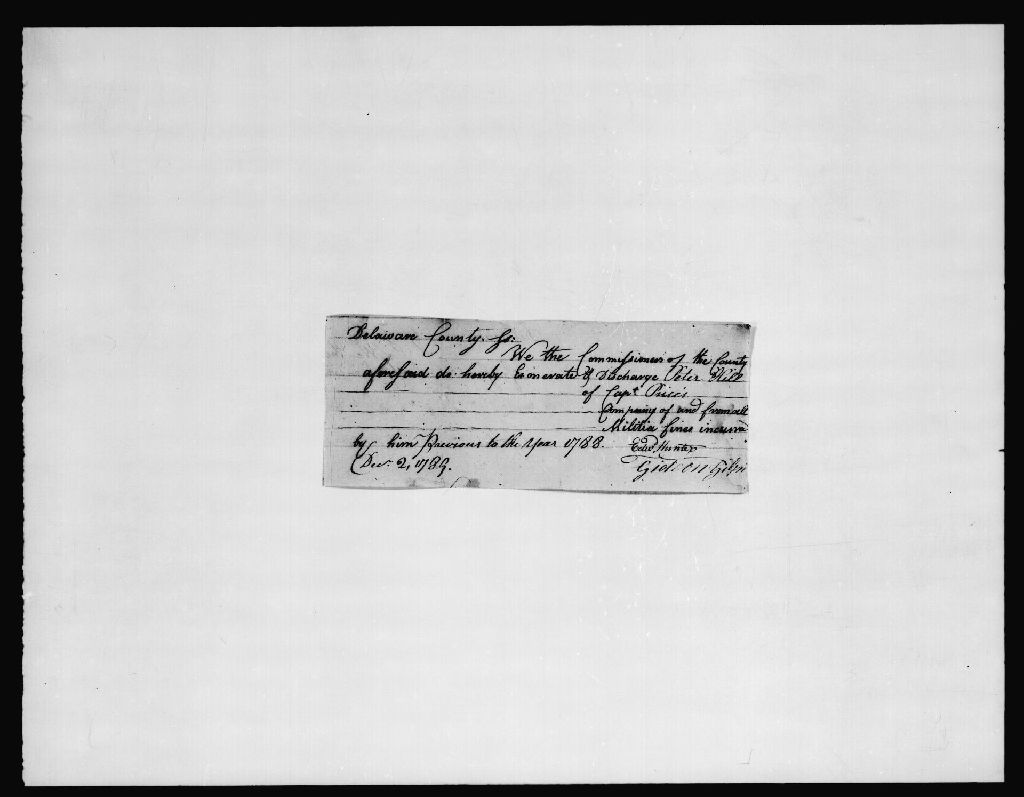 Delaware County. ss:
We the Commissioners of the County
aforesaid do hereby Exonerate & discharge Peter Hill
of Capt. Price's
Company of and from all
Militia fines incurrd
by him Previous to the Year 1788.
Edwd. Hunter
Decr. 2, 1789.
Gideon Gilpin